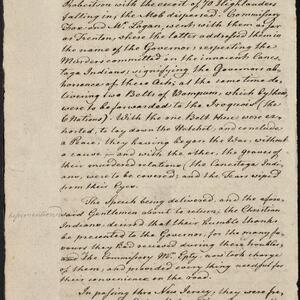 Robertson with the escort of 70 Highlanders
falling in the Mob dispersed. Commissary
Fox and Mr. Logan, went with them as far
as Trenton, where the latter addressed them in
the name of the Governor, respecting the
Murders committed on the innocent Canes-
taga Indians; signifying the Governors ab-
horrence of these Acts; at the same time de-
livering two Belts of Wampum, which
were to be forwarded to the Iroquois (the
6 Nations). With the one Belt these were ex-
horted, to lay down the Hatchet, and conclude
a Peace; they having began the War, without
a cause:— and with the other, the graves of
their murdered relations (the Canestaga Indi-
ans, were to be covered; and the Tears wiped
from their Eyes.
The Speech being delivered, and the afore-
said Gentlemen about to return, the Christian
Indians, desired that their humble thanks
be presented to the Governor, for the many fa-
vours they had received during their troubles,
The Commissary Mr. Epty, now took charge
of them, and provided every thing needful for
their convenience on the road.
In passing thro' New Jersey, they were